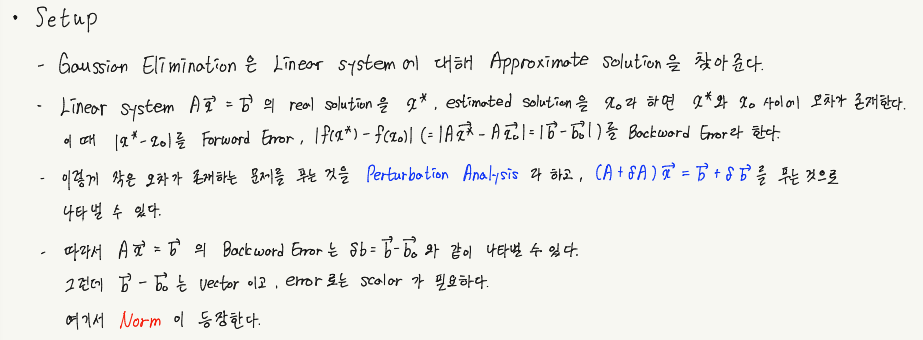 • Setup
- Gaussian Elimination은 Linear system에 대해 Approximate solution을 찾아준다.
- Linear system A\vec{x} = \vec{b} 의 real solution을 x*, estimated solution을 x₀라 하면 x*와 x₀ 사이에 오차가 존재한다.
이 때 |x*-x₀|를 Forward Error, |f(x*)-f(x₀)| (=|A\vec{x*}-A\vec{x₀}|=|\vec{b}-\vec{b₀}|)를 Backward Error라 한다.
- 이렇게 작은 오차가 존재하는 문제를 푸는 것을 Perturbation Analysis 라 하고, (A+δA)\vec{x} = \vec{b}+δ\vec{b} 를 푸는 것으로
나타낼 수 있다.
- 따라서 A\vec{x} = \vec{b} 의 Backward Error는 δb=\vec{b}-\vec{b₀} 와 같이 나타낼 수 있다.
그런데 \vec{b}-\vec{b₀} 는 vector 이고, error로는 scalar 가 필요하다.
여기서 Norm 이 등장한다.